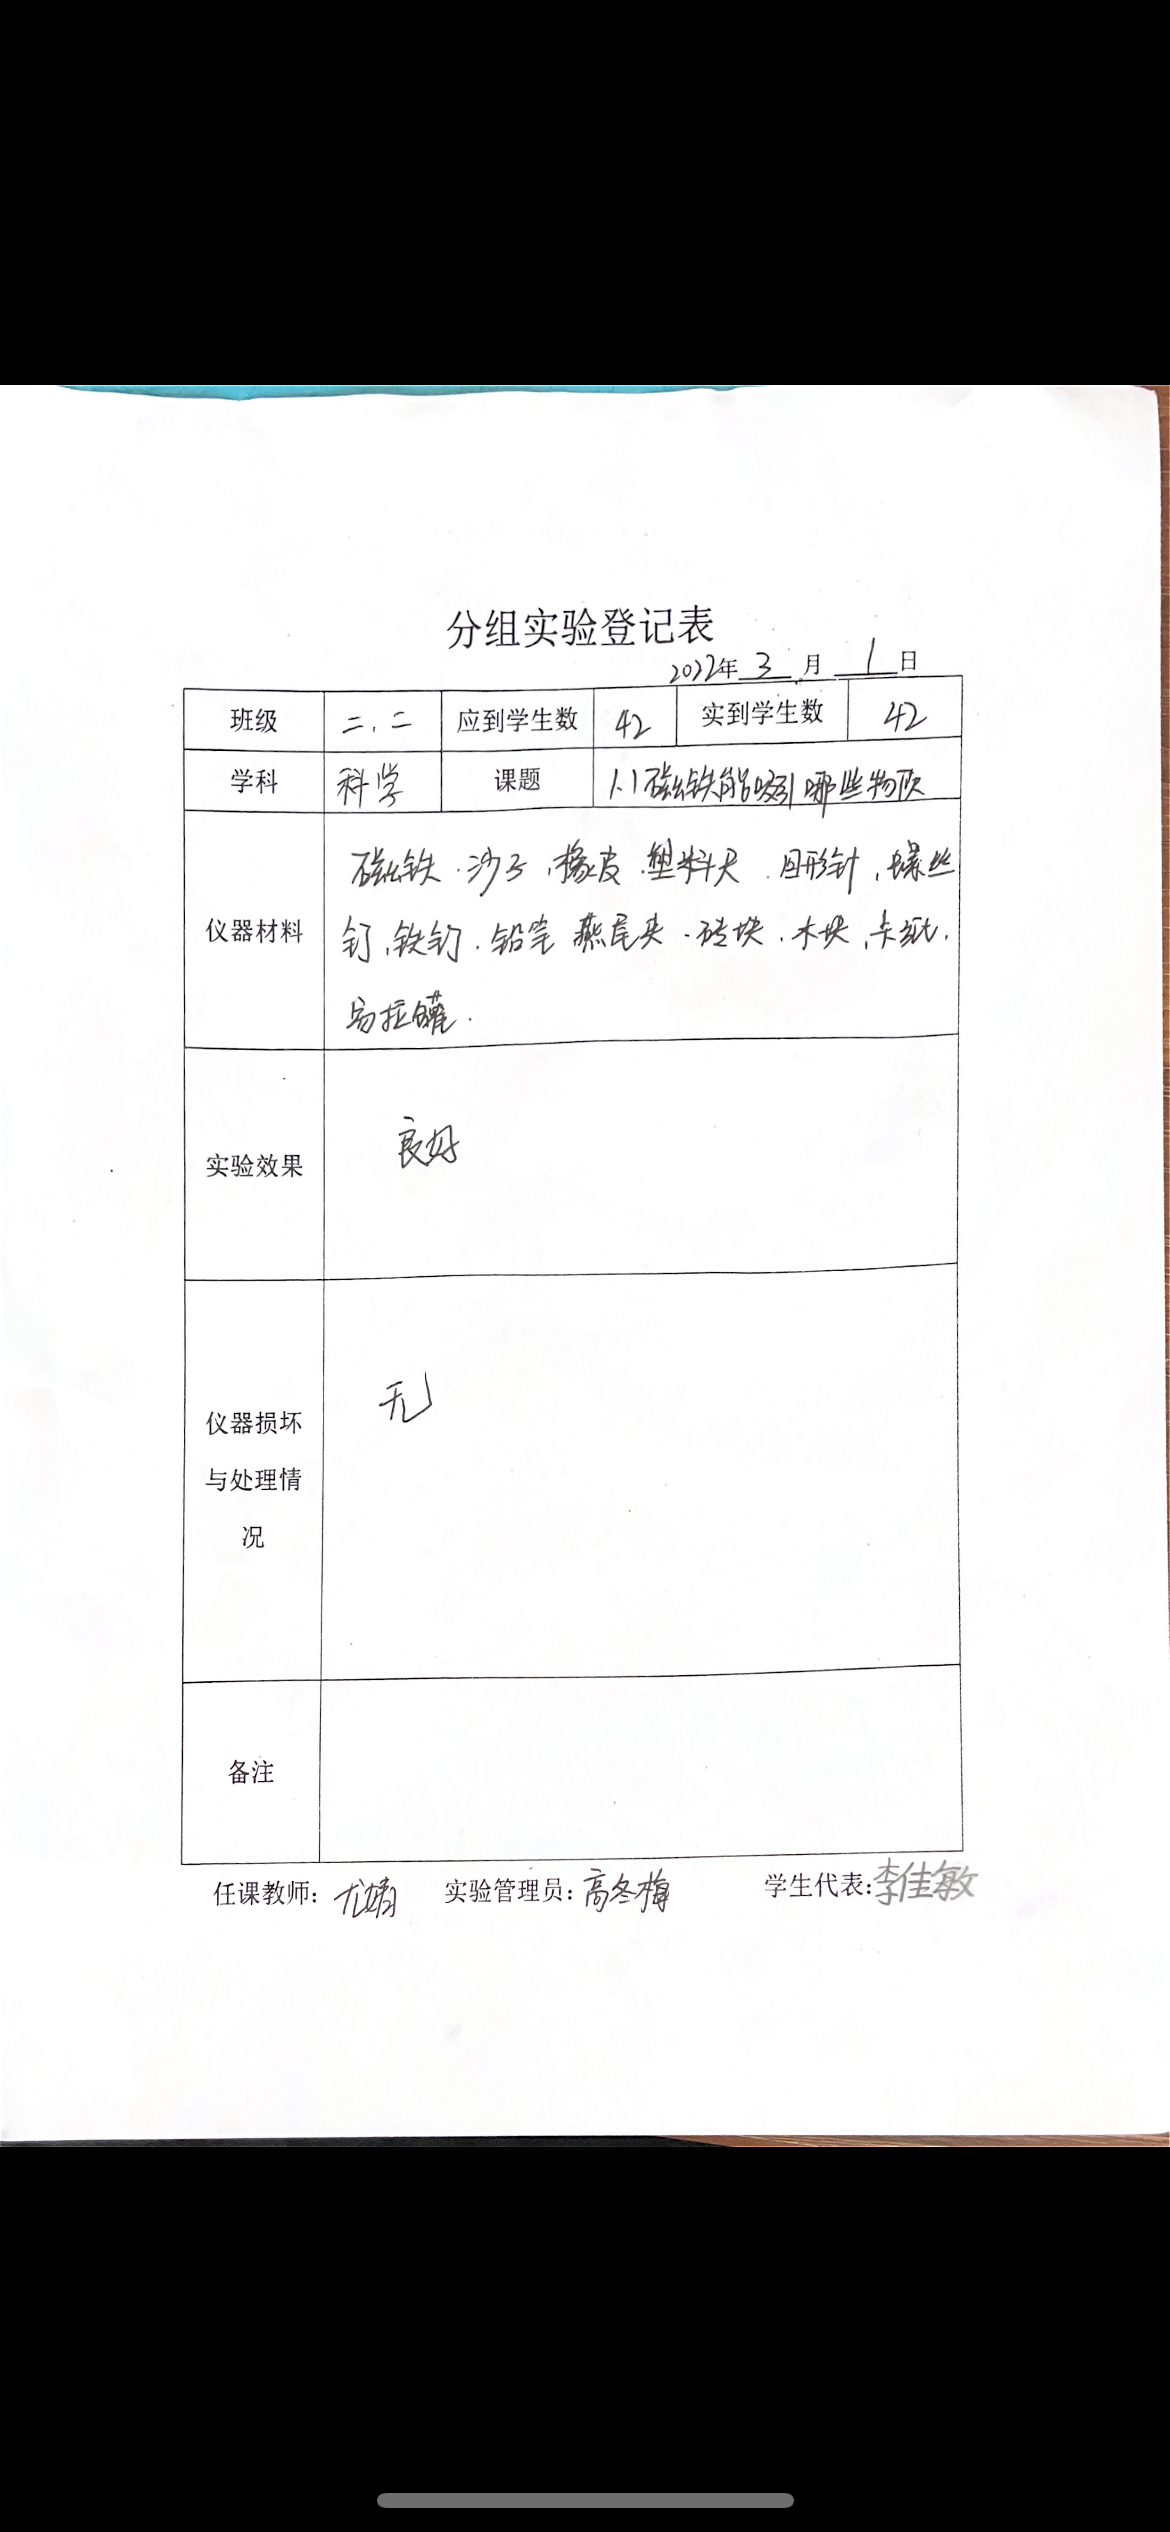 分组实验登记表
2022年 3 月 1 日
班级 二.二 应到学生数 42 实到学生数 42
学科 科学 课题 1.1磁铁能吸引哪些物质
仪器材料
磁铁.沙子,橡皮.塑料尺.回形针,螺丝
钉,铁钉.铅笔 燕尾夹.砖块.木块,卡纸.
易拉罐.
实验效果 良好
仪器损坏
与处理情
况
无
备注
任课教师: 尤婧 实验管理员: 高冬梅 学生代表: 李佳敏